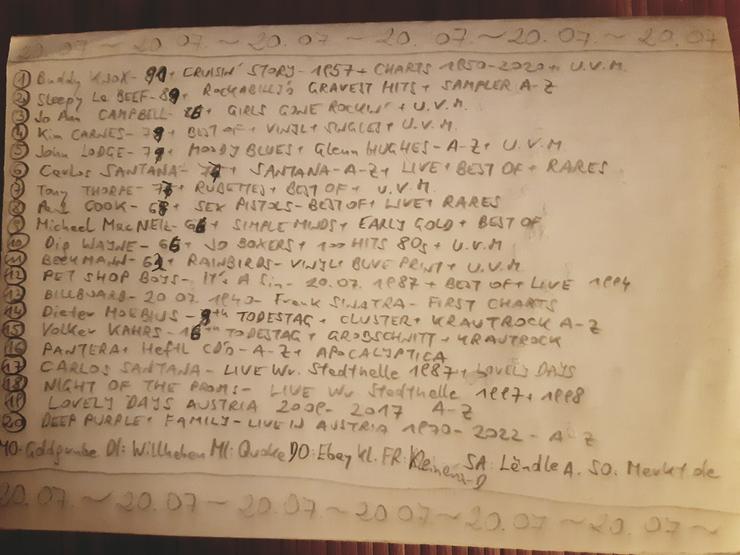 20.07 ~ 20.07 ~ 20.07 ~ 20.07 ~ 20.07 ~ 20.07
1 Buddy KNOX - 91 + CRUISIN' STORY - 1957 + CHARTS 1950-2020 + U.V.M.
2 Sleepy La BEEF - 89 + ROCKABILLY'S GRAVEST HITS + SAMPLER A-Z
3 Jo Ann CAMPBELL - 86 + GIRLS GONE ROCKIN' + U.V.M.
4 Kim CARNES - 79 + BEST OF + VINYL + SINGLES + U.V.M.
5 John LODGE - 79 + MOODY BLUES + Glenn HUGHES - A-Z + U.V.M
6 Carlos SANTANA - + SANTANA - A-Z + LIVE + BEST OF + RARES
7 Tony THORPE - + RUBETTES + BEST OF + U.V.M.
8 Paul COOK - + SEX PISTOLS - BEST OF + LIVE + RARES
9 Michael MacNEIL - + SIMPLE MINDS + EARLY GOLD + BEST OF
10 Dig WAYNE - + JO BOXERS + 100 HITS 80s + U.V.M
11 BECKMANN - + RAINBIRDS - VINYL + BLUE PRINT + U.V.M
12 PET SHOP BOYS - It's A Sin - 20.07.1987 + BEST OF + LIVE 1994
13 BILLBOARD - 20.07.1940 - Frank SINATRA - FIRST CHARTS
14 Dieter MOEBIUS - TODESTAG + CLUSTER + KRAUTROCK A-Z
15 Volker KAHRS - TODESTAG + GROBSCHNITT + KRAUTROCK
16 PANTERA + Heftl CD's - A-Z + APOCALYPTICA
17 CARLOS SANTANA - LIVE Wr. Stadthalle 1987 + LOVELY DAYS
18 NIGHT OF THE PROMS - LIVE Wr Stadthalle 1997 + 1998
19 LOVELY DAYS AUSTRIA 2009 - 2017 A-Z
20 DEEP PURPLE + FAMILY - LIVE IN AUSTRIA 1970 - 2022 - A-Z
MO: Goldgrube DI: Willhaben MI: Quoka DO: Ebay Kl. FR: Kleinanz-D SA: Ländle A. SO. Markt de
20.07 ~ 20.07 ~ 20.07 ~ 20.07 ~ 20.07 ~ 20.07 ~ 20.07 ~